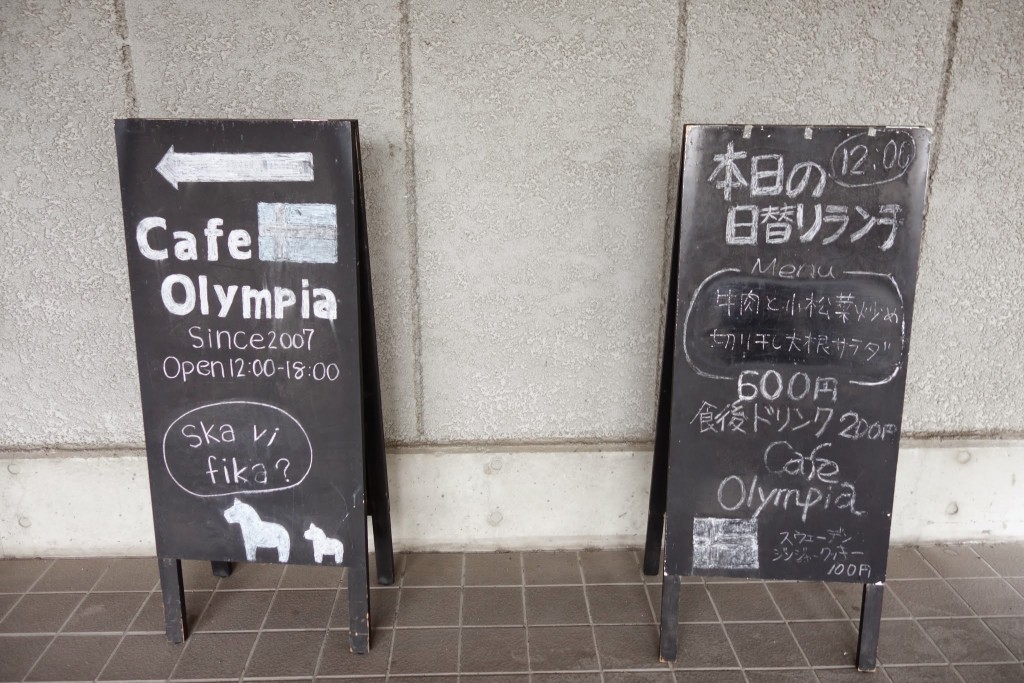 Cafe
Olympia
Since2007
Open12:00-18:00
Ska vi
fika?
12:00
本日の
日替リランチ
Menu
牛肉と小松菜炒め
切り干し大根サラダ
600円
食後ドリンク 200円
Cafe
Olympia
スウェーデン
ジンジャークッキー
100円